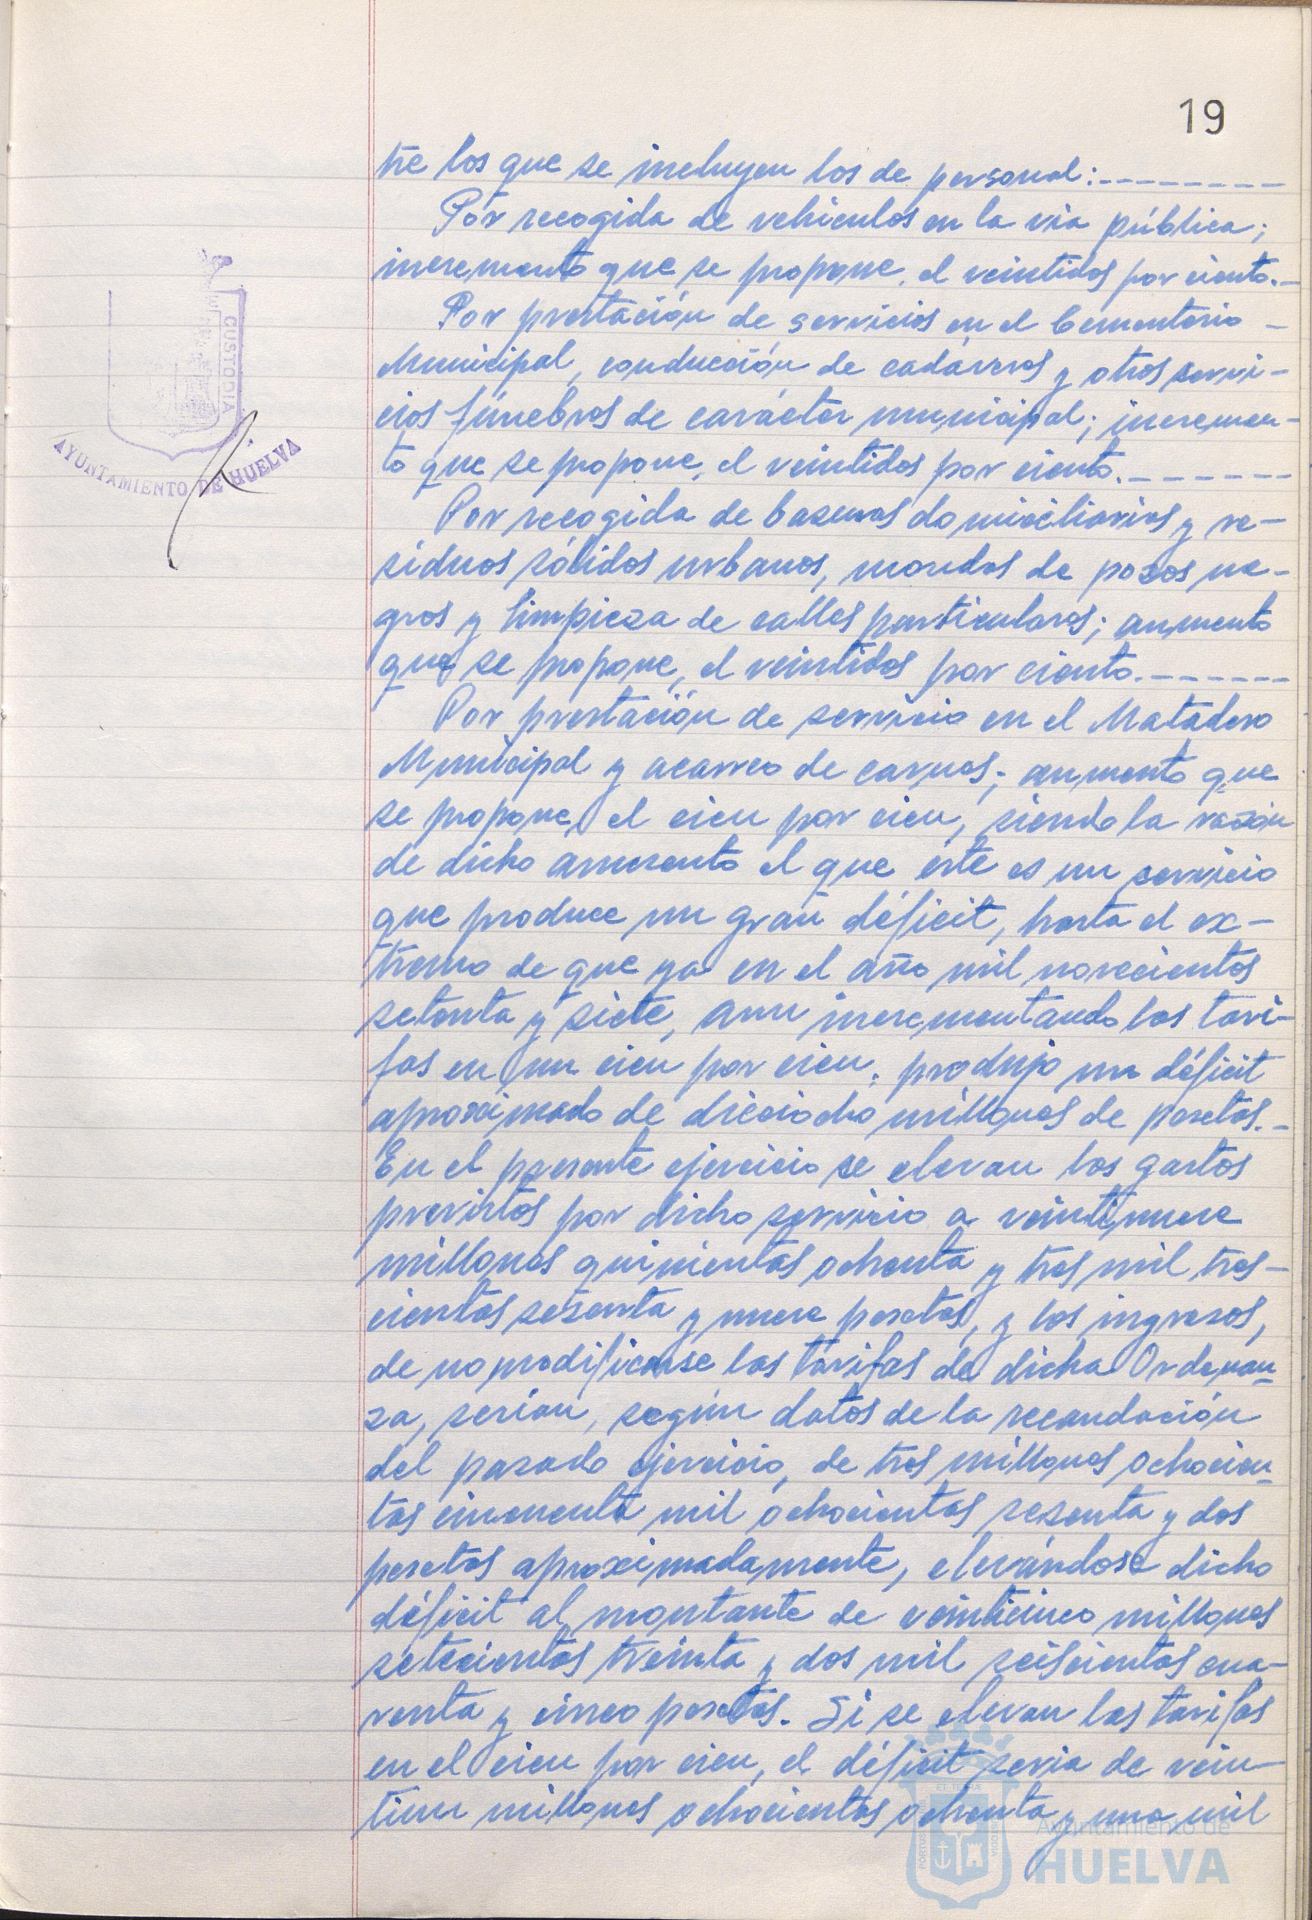 19
tre los que se incluyen los de personal:--------
Por recogida de vehículos en la vía pública;
incremento que se propone, el veintidos por ciento.-
Por prestación de servicios en el Cementerio -
Municipal, conducción de cadáveres y otros servi-
cios fúnebres de carácter municipal; incremen-
to que se propone, el veintidos por ciento.-------
Por recogida de basuras domiciliarias y re-
siduos sólidos urbanos, mondas de pozos ne-
gros y limpieza de calles particulares; aumento
que se propone, el veintidos por ciento.------
Por prestación de servicio en el Matadero
Municipal y acarreo de carnes; aumento que
se propone, el cien por cien, siendo la razón
de dicho aumento el que éste es un servicio
que produce un gran déficit, hasta el ex-
tremo de que ya en el año mil novecientos
setenta y siete, aun incrementando las tari-
fas en un cien por cien, produjo un déficit
aproximado de dieciocho millones de pesetas.-
En el presente ejercicio se elevan los gastos
previstos por dicho servicio a veintinueve
millones quinientas ochenta y tres mil tres-
cientas sesenta y nueve pesetas, y los ingresos,
de no modificarse las tarifas de dicha Ordenan-
za, serían, según datos de la recaudación
del pasado ejercicio, de tres millones ochocien-
tas cincuenta mil ochocientas sesenta y dos
pesetas aproximadamente, elevándose dicho
déficit al montante de veinticinco millones
setecientas treinta y dos mil seiscientas cua-
renta y cinco pesetas. Si se elevan las tarifas
en el cien por cien, el déficit sería de vein-
tiun millones ochocientas ochenta y una mil
CUSTODIA
AYUNTAMIENTO DE HUELVA
Ayuntamiento de
HUELVA